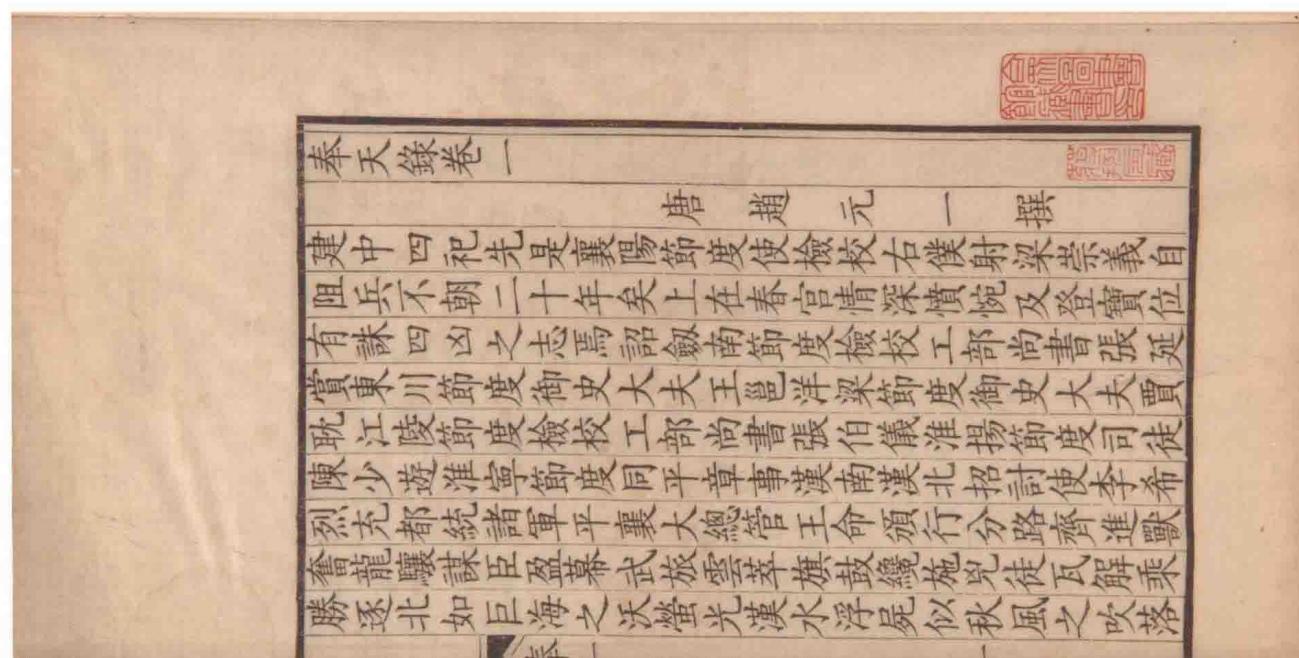 奉天錄卷一
唐趙元一撰
建中四祀先是襄陽節度使檢校右僕射梁崇義自
阻兵不朝二十年矣上在春宮情深憤惋及登寶位
有誅四凶之志焉詔劔南節度檢校工部尚書張延
賞東川節度御史大夫王邕洋梁節度御史大夫賈
耽江陵節度檢校工部尚書張伯儀淮揚節度司徒
陳少遊淮寧節度同平章事漢南漢北招討使李希
烈充都統諸軍平襄大總管王命頒行分路齊進獸
奮龍驤謀臣盈幕武旅雲萃旗鼓纔施兇徒瓦解乘
勝逐北如巨海之沃螢光漢水浮屍似秋風之吹落